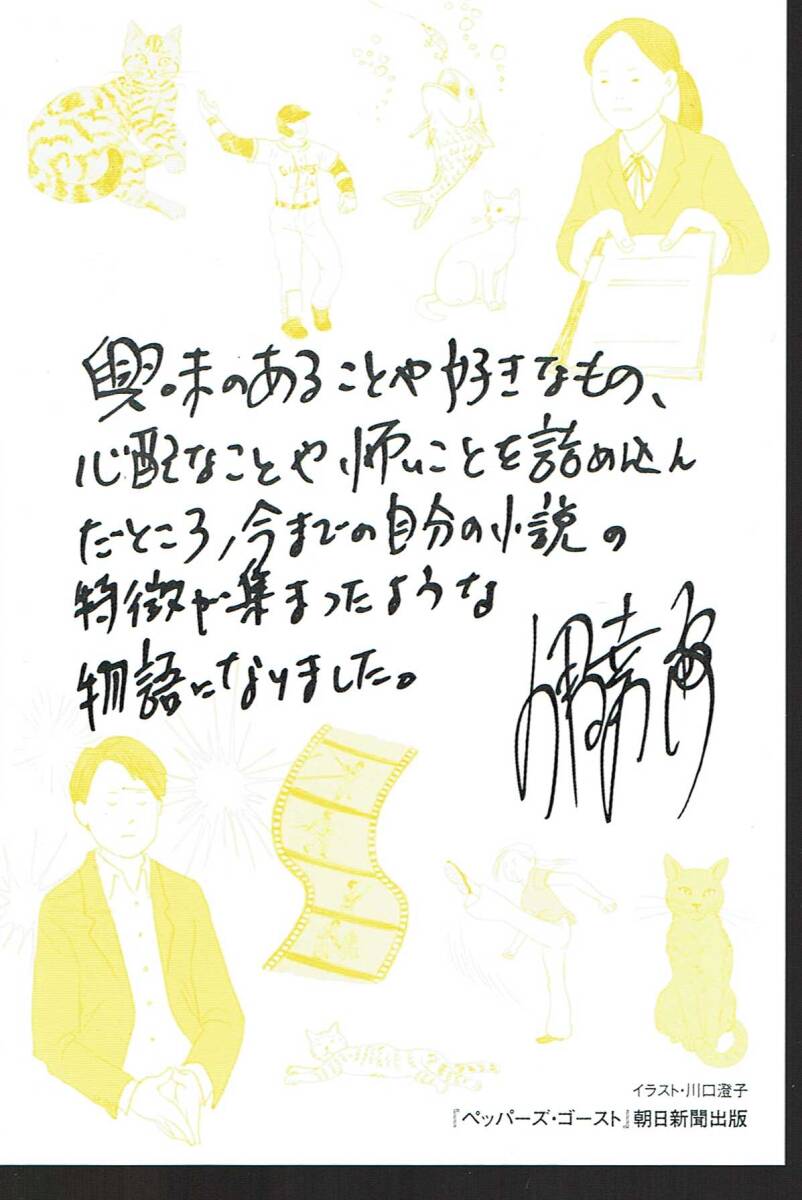 GIANTS
興味のあることや好きなもの、
心配なことや怖いことを詰め込ん
だところ、今までの自分の小説の
特徴が集まったような
物語になりました。
イラスト・川口澄子
『ペッパーズ・ゴースト』朝日新聞出版